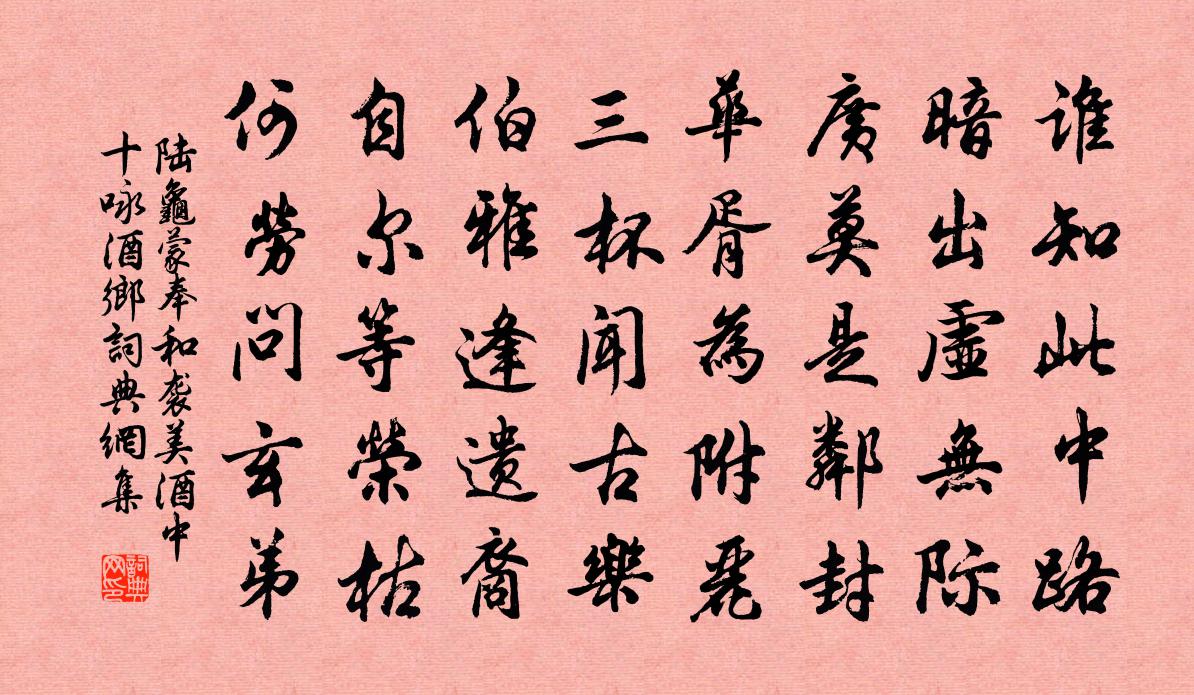 谁知此中路
暗出虚無际
廣莫是鄰封
華胥為附麗
三杯闻古樂
伯雅逢遗裔
自尔等榮枯
何勞問玄弟
陆龜蒙奉和袭美酒中
十咏酒鄉詞典網集
詞典网印